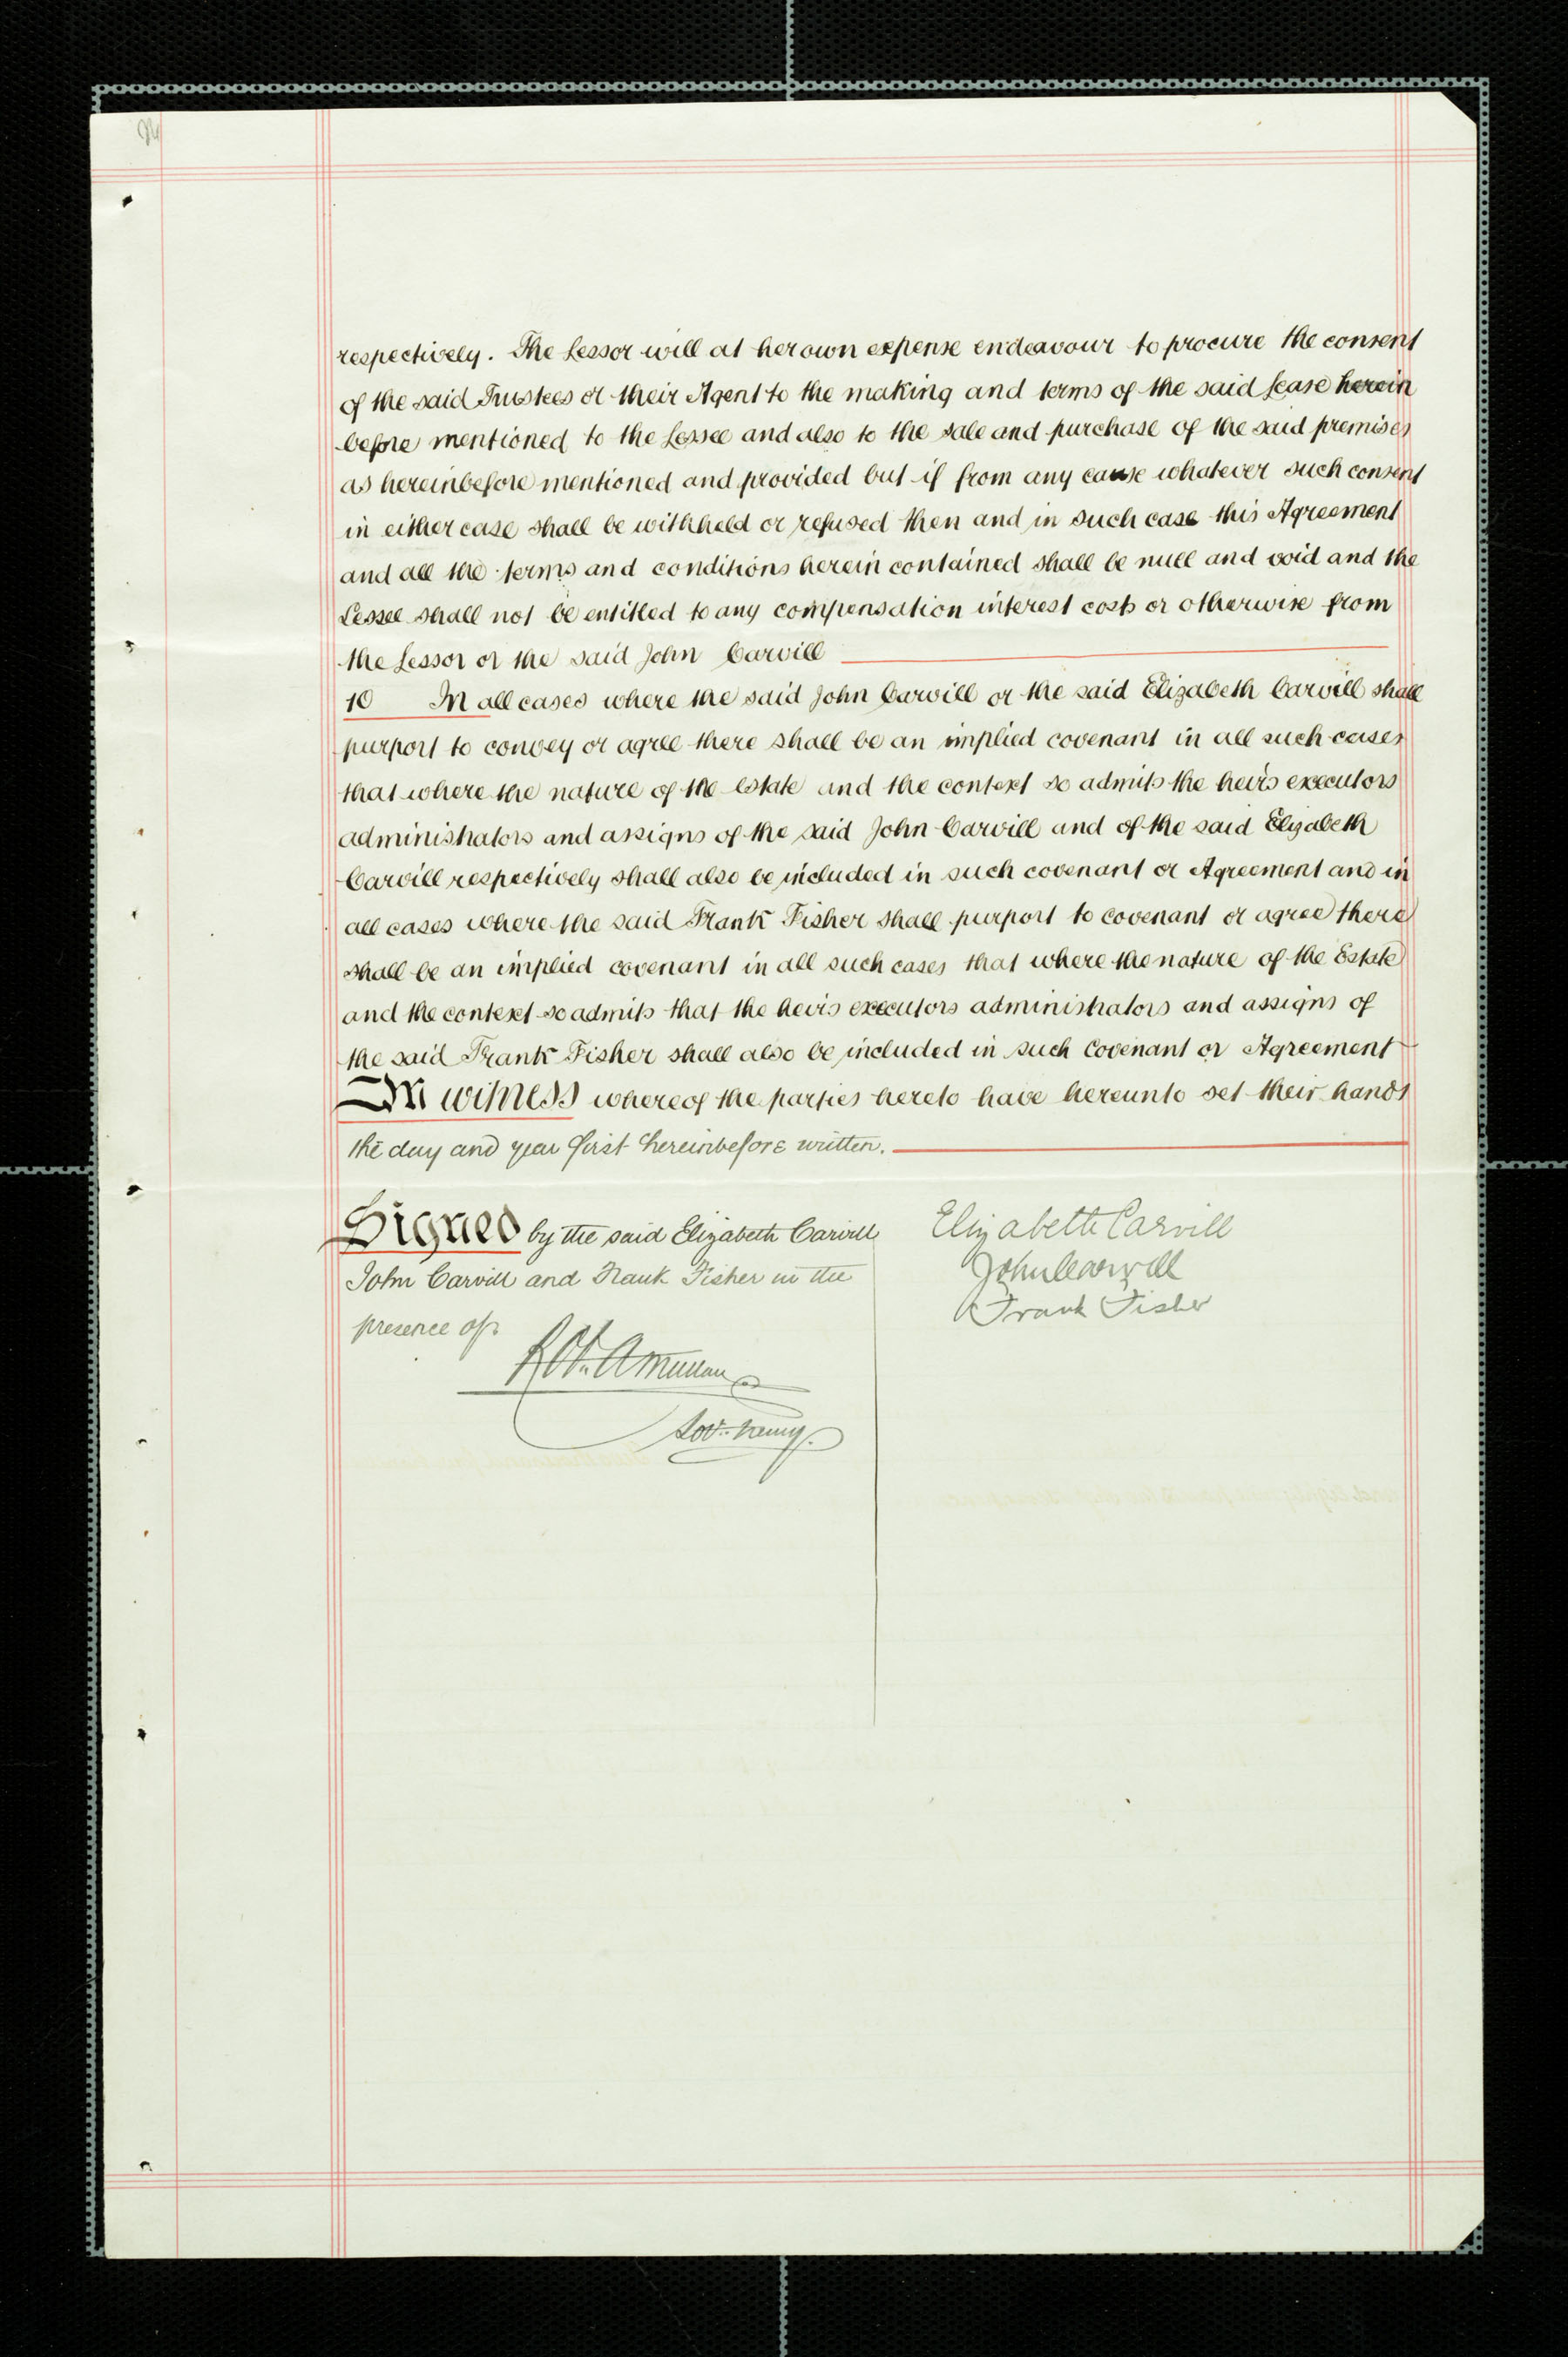 respectively. The Lessor will at her own expense endeavour to procure the consent
of the said Trustees or their Agent to the making and terms of the said lease herein
before mentioned to the Lessee and also to the sale and purchase of the said premises
as hereinbefore mentioned and provided but if from any cause whatever such consent
in either case shall be withheld or refused then and in such case this Agreement
and all the terms and conditions herein contained shall be null and void and the
Lessee shall not be entitled to any compensation interest costs or otherwise from
the Lessor or the said John Carvill
10 In all cases where the said John Carvill or the said Elizabeth Carvill shall
purport to convey or agree there shall be an implied covenant in all such cases
that where the nature of the estate and the context so admits the heirs executors
administrators and assigns of the said John Carvill and of the said Elizabeth
Carvill respectively shall also be included in such covenant or Agreement and in
all cases where the said Frank Fisher shall purport to covenant or agree there
shall be an implied covenant in all such cases that where the nature of the Estate
and the context so admits that the heirs executors administrators and assigns of
the said Frank Fisher shall also be included in such Covenant or Agreement
In witness whereof the parties hereto have hereunto set their hands
the day and year first hereinbefore written.
Signed by the said Elizabeth Carvill
John Carvill and Frank Fisher in the
presence of:
Elizabeth Carvill
John Carvill
Frank Fisher